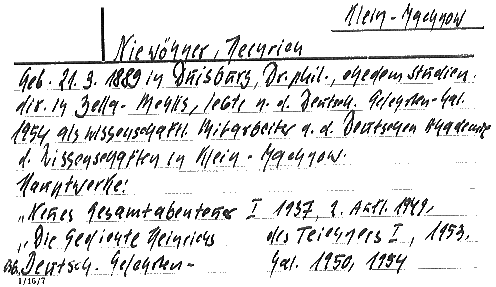 Klein-Machnow
Niewöhner, Heinrich
Geb. 21.3.1889 in Duisburg, Dr. phil., ehedem Studien-
dir. in Zella-Mehlis, lebte n. d. Deutsch. Gelehrten-Kal.
1954 als wissenschaftl. Mitarbeiter a. d. Deutschen Akademie
d. Wissenschaften in Klein-Machnow.
Hauptwerke:
„Neues Gesamtabenteuer I 1937, 2. Aufl. 1949,
„Die Gedichte Heinrichs des Teichners I, 1953.
Deutsch. Gelehrten- Kal. 1950, 1954
1/16/7